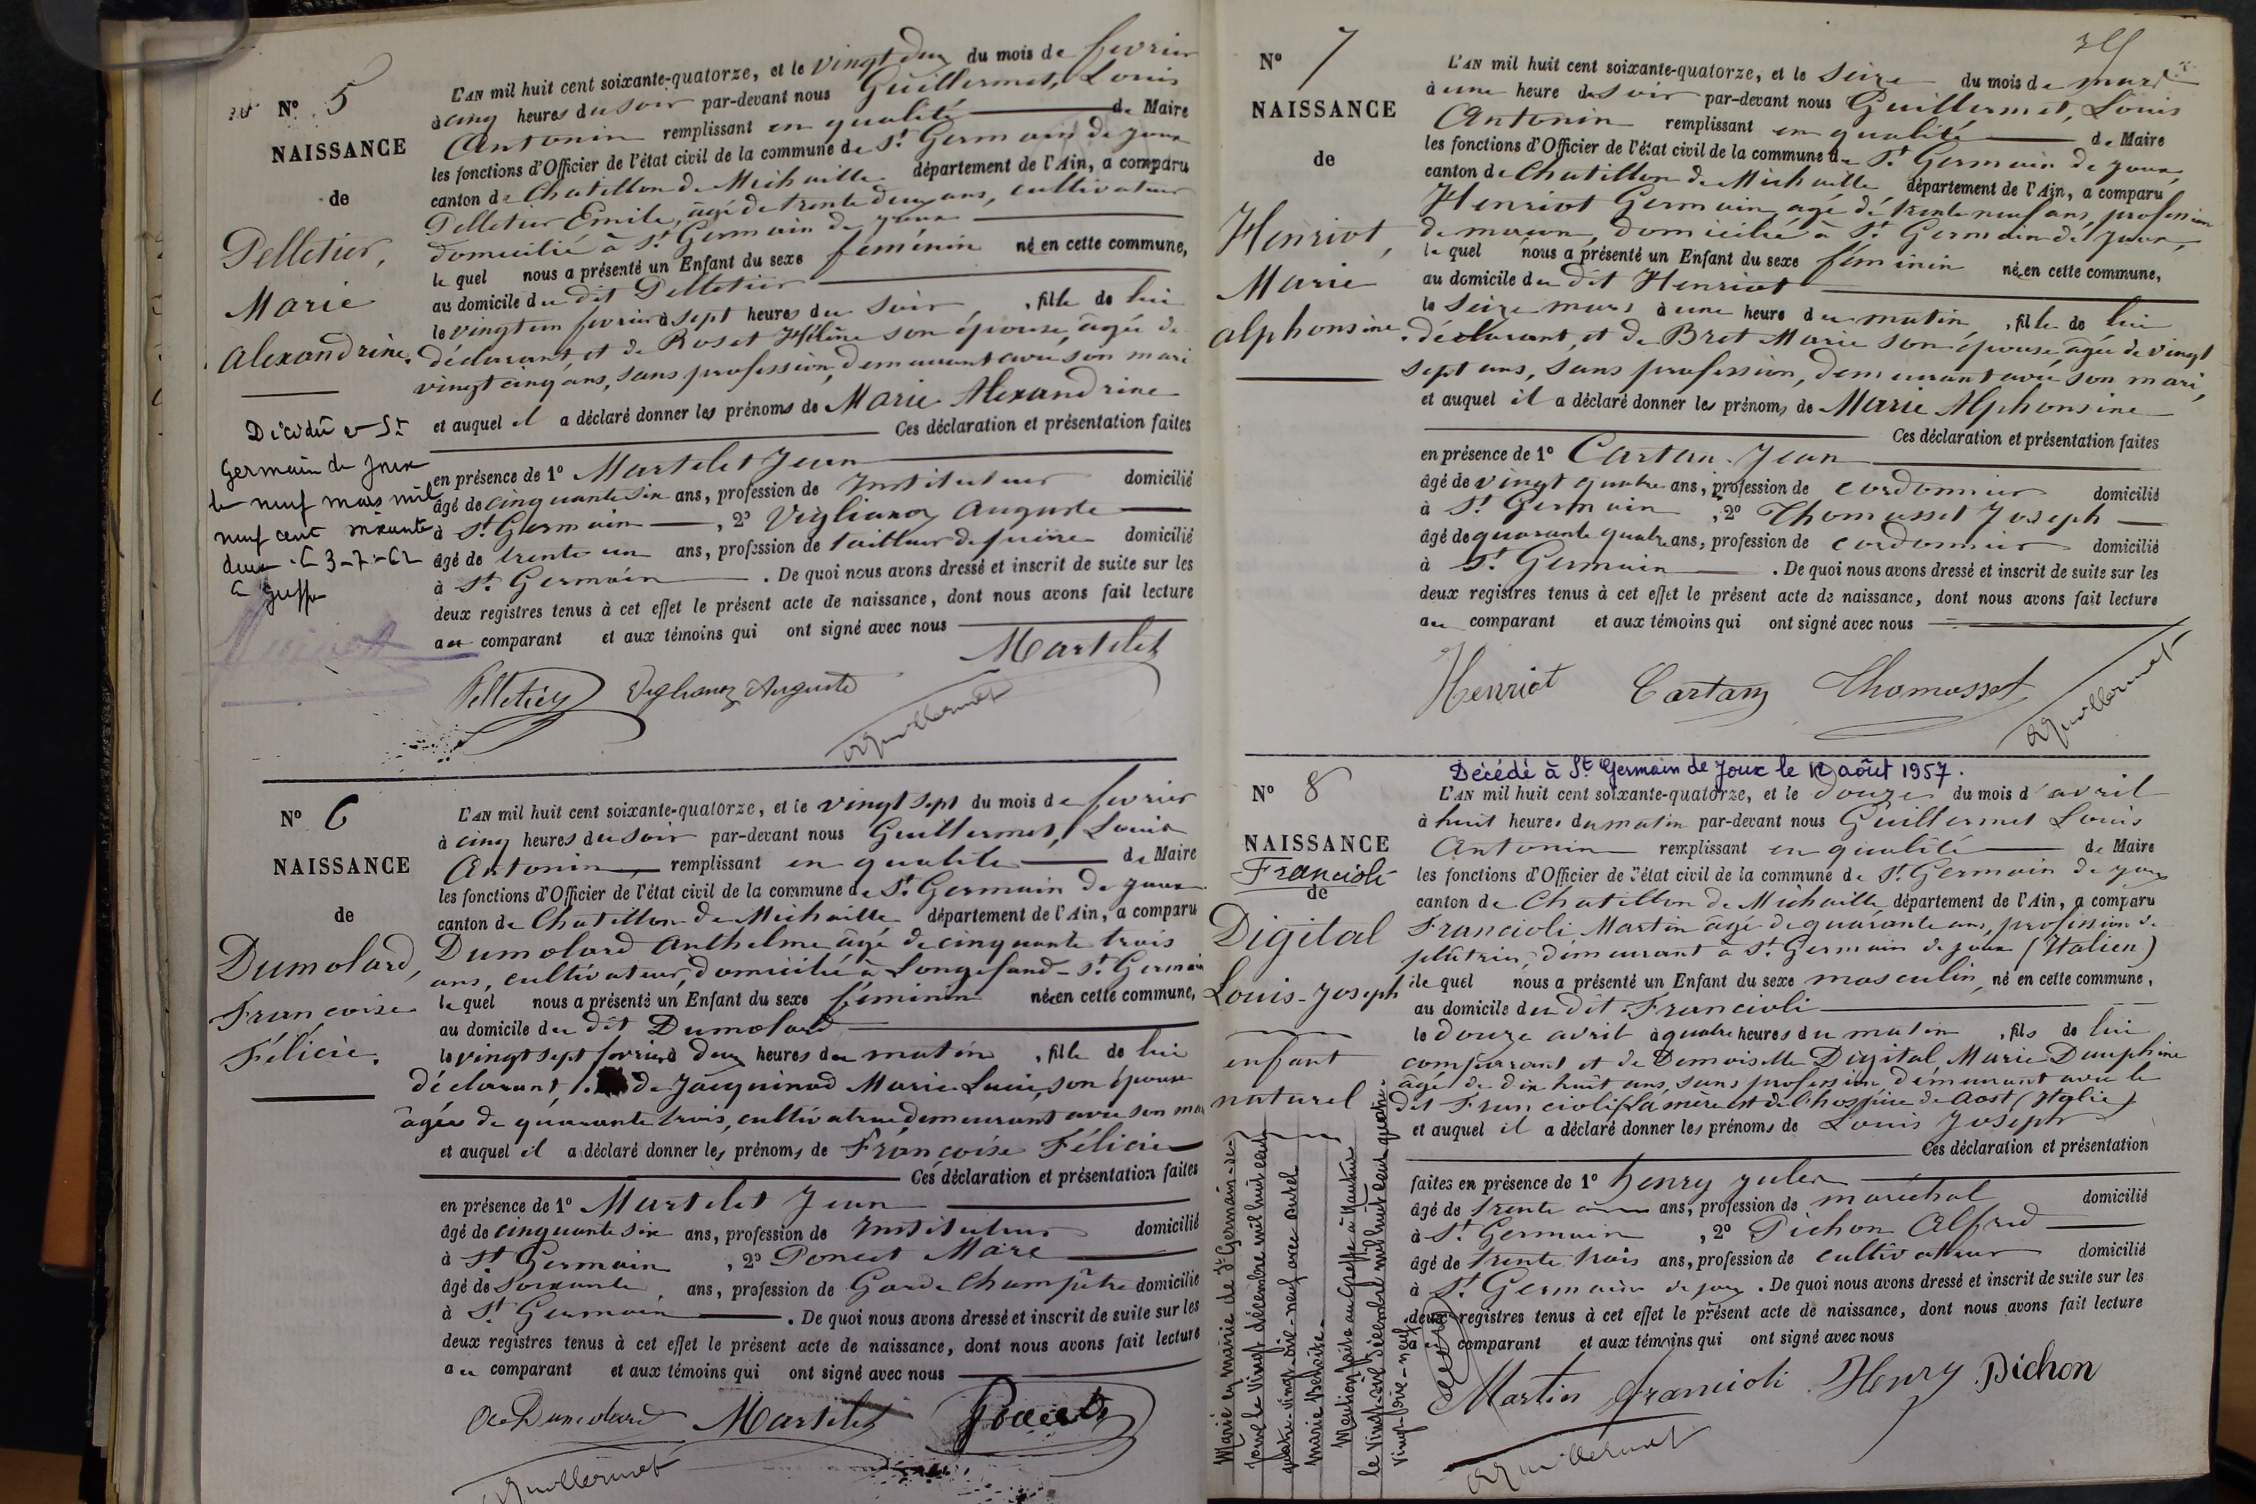 N° 5
NAISSANCE
de
Pelletier,
Marie
Alexandrine.
Décédée à St
Germain de Joux
le neuf mars mil
neuf cent soixante
deux. le 3-7-62
Le Greffier
L'AN mil huit cent soixante-quatorze, et le vingt deux du mois de fevrier
à cinq heures du soir par-devant nous Guillermet, Louis
Antonin remplissant en qualité de Maire
les fonctions d'Officier de l'état civil de la commune de St Germain de joux
canton de Chatillon de Michaille département de l'Ain, a comparu
Pelletier Emile, âgé de trente deux ans, cultivateur
domicilié à St Germain de joux
le quel nous a présenté un Enfant du sexe féminin né en cette commune,
au domicile du dit Pelletier
le vingt un fevrier à sept heures du soir , fille de lui
déclarant et de Roset Hélène son épouse, âgée de
vingt cinq ans, sans profession, demeurant avec son mari
et auquel il a déclaré donner les prénoms de Marie Alexandrine
Ces déclaration et présentation faites
en présence de 1° Martelet Jean
âgé de cinquante six ans, profession de Instituteur domicilié
à St Germain , 2° Viglianoz Auguste
âgé de trente un ans, profession de tailleur de pierre domicilié
à St Germain . De quoi nous avons dressé et inscrit de suite sur les
deux registres tenus à cet effet le présent acte de naissance, dont nous avons fait lecture
au comparant et aux témoins qui ont signé avec nous
Martelet
Pelletier Viglianoz Auguste
Guillermet
N° 6
NAISSANCE
de
Dumolard,
Francoise
Félicie.
L'AN mil huit cent soixante-quatorze, et le vingt sept du mois de fevrier
à cinq heures du soir par-devant nous Guillermet, Louis
Antonin, remplissant en qualité de Maire
les fonctions d'Officier de l'état civil de la commune de St Germain de joux
canton de Chatillon de Michaille département de l'Ain, a comparu
Dumolard Anthelme âgé de cinquante trois
ans, cultivateur, domicilié à Longefand - St Germain
le quel nous a présenté un Enfant du sexe féminin née en cette commune,
au domicile du dit Dumolard
le vingt sept fevrier à deux heures du matin , fille de lui
déclarant, de Jacquinod Marie Lucie, son épouse
âgée de quarante trois, cultivatrice demeurant avec son mari
et auquel il a déclaré donner les prénoms de Françoise Félicie
Ces déclaration et présentation faites
en présence de 1° Martelet Jean
âgé de cinquante six ans, profession de Instituteur domicilié
à St Germain , 2° Poncet Marc
âgé de soixante ans, profession de Garde Champêtre domicilié
à St Germain . De quoi nous avons dressé et inscrit de suite sur les
deux registres tenus à cet effet le présent acte de naissance, dont nous avons fait lecture
au comparant et aux témoins qui ont signé avec nous
Dumolard Martelet Poncet
Guillermet
N° 7
NAISSANCE
de
Henriot,
Marie
alphonsine.
L'AN mil huit cent soixante-quatorze, et le seize du mois de mars
à une heure du soir par-devant nous Guillermet, Louis
Antonin remplissant en qualité de Maire
les fonctions d'Officier de l'état civil de la commune de St Germain de joux,
canton de Chatillon de Michaille département de l'Ain, a comparu
Henriot Germain agé de trente neuf ans, profession
de maçon, domicilié à St Germain de joux,
le quel nous a présenté un Enfant du sexe féminin née en cette commune,
au domicile du dit Henriot
le seize mars à une heure du matin , fille de lui
déclarant, et de Bret Marie son épouse, âgée de vingt
sept ans, sans profession, demeurant avec son mari,
et auquel il a déclaré donner les prénoms de Marie Alphonsine
Ces déclaration et présentation faites
en présence de 1° Cartan Jean
âgé de vingt quatre ans, profession de cordonnier domicilié
à St Germain , 2° Thomasset Joseph
âgé de quarante quatre ans, profession de cordonnier domicilié
à St Germain . De quoi nous avons dressé et inscrit de suite sur les
deux registres tenus à cet effet le présent acte de naissance, dont nous avons fait lecture
au comparant et aux témoins qui ont signé avec nous
Henriot Cartan Thomasset
Guillermet
Décédé à St Germain de Joux le 12 août 1957.
N° 8
NAISSANCE
Francioli
de
Digital
Louis-Joseph
enfant
naturel
Marié en mairie de St Germain-de-
Joux le vingt décembre mil huit cent
quatre-vingt-dix-neuf avec
Marie
Mention faite au Greffe à Nantua
le vingt-six décembre mil huit cent quatre-
vingt-dix-neuf
L'AN mil huit cent soixante-quatorze, et le douze du mois d'avril
à huit heures du matin par-devant nous Guillermet Louis
Antonin remplissant en qualité de Maire
les fonctions d'Officier de l'état civil de la commune de St Germain de joux
canton de Chatillon de Michaille département de l'Ain, a comparu
Francioli Martin âgé de quarante ans, profession de
plâtrier, demeurant à St Germain de joux (Italien)
le quel nous a présenté un Enfant du sexe masculin, né en cette commune,
au domicile du dit Francioli
le douze avril à quatre heures du matin , fils de lui
comparant et de Demoiselle Digital Marie Dauphine
âgée de dix huit ans, sans profession, demeurant avec le
dit Francioli (La mère est de l'hospice de Aost (Italie)
et auquel il a déclaré donner les prénoms de Louis Joseph
Ces déclaration et présentation
faites en présence de 1° henry jules
âgé de trente ans, profession de maréchal domicilié
à St Germain , 2° Pichon Alfred
âgé de trente trois ans, profession de cultivateur domicilié
à St Germain de joux . De quoi nous avons dressé et inscrit de suite sur les
deux registres tenus à cet effet le présent acte de naissance, dont nous avons fait lecture
au comparant et aux témoins qui ont signé avec nous
Martin Francioli Henry Pichon
Guillermet